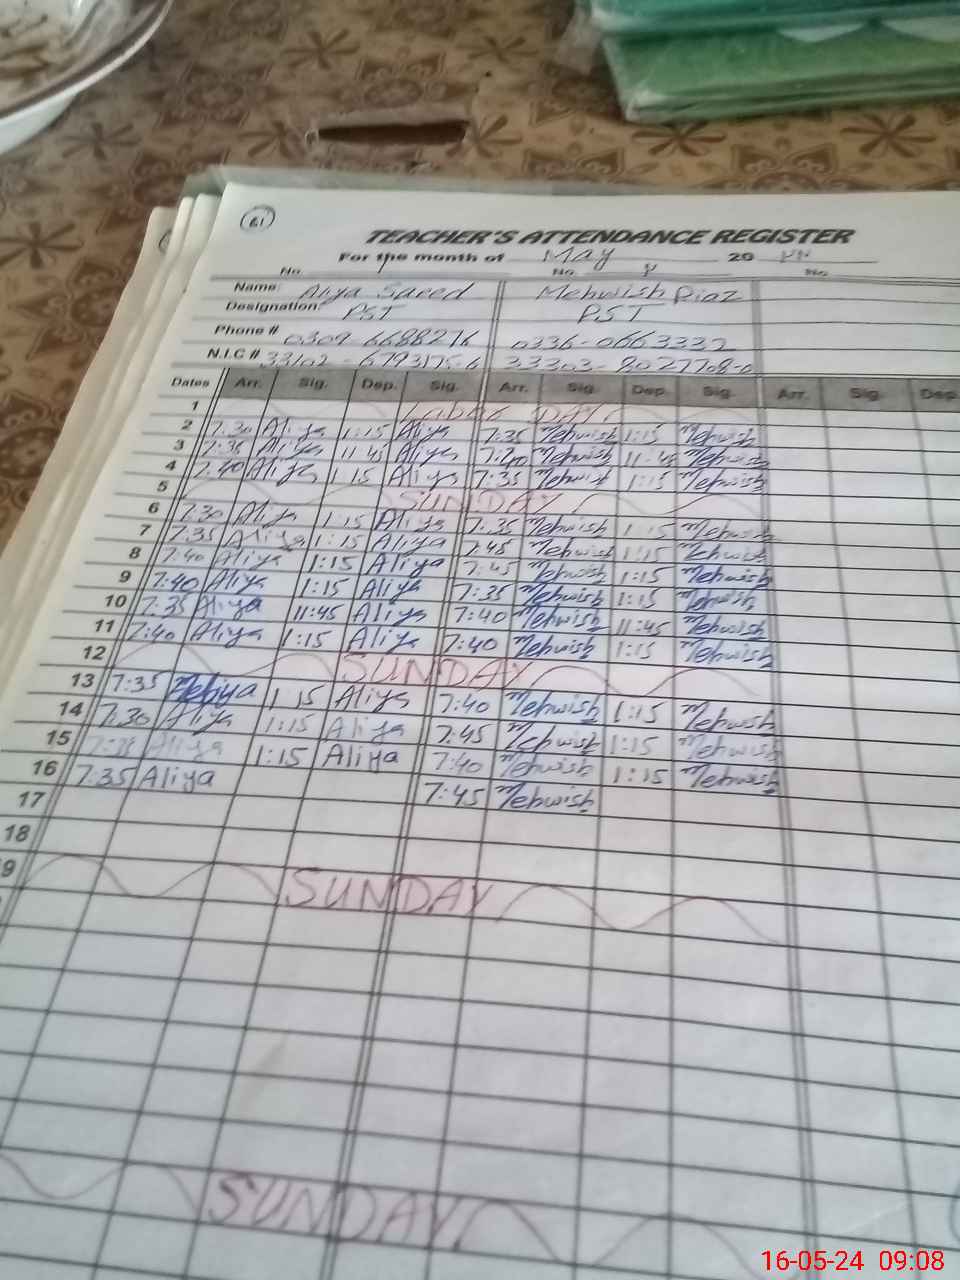 61
TEACHER'S ATTENDANCE REGISTER
For the month of May 20
No. 1 No. No.
Name: Aliya Saeed Mehwish Riaz
Designation: PST PST
Phone # 0309-6688276 0336-0663337
N.I.C # 33102-6793175-6 33303-8027708-0
Dates Arr. Sig. Dep. Sig. Arr. Sig. Dep. Sig. Arr. Sig. Dep.
1 Labor DAY
2 7:30 Aliya 1:15 Aliya 7:35 Mehwish 1:15 Mehwish
3 7:35 Aliya 11:45 Aliya 7:40 Mehwish 11:45 Mehwish
4 7:40 Aliya 1:15 Aliya 7:35 Mehwish 1:15 Mehwish
5 SUNDAY
6 7:30 Aliya 1:15 Aliya 7:35 Mehwish 1:15 Mehwish
7 7:35 Aliya 1:15 Aliya 7:45 Mehwish 1:15 Mehwish
8 7:40 Aliya 1:15 Aliya 7:45 Mehwish 1:15 Mehwish
9 7:40 Aliya 1:15 Aliya 7:35 Mehwish 1:15 Mehwish
10 7:35 Aliya 11:45 Aliya 7:40 Mehwish 11:45 Mehwish
11 7:40 Aliya 1:15 Aliya 7:40 Mehwish 1:15 Mehwish
12 SUNDAY
13 7:35 Aliya 1:15 Aliya 7:40 Mehwish 1:15 Mehwish
14 7:30 Aliya 1:15 Aliya 7:45 Mehwish 1:15 Mehwish
15 Aliya 1:15 Aliya 7:40 Mehwish 1:15 Mehwish
16 7:35 Aliya 7:45 Mehwish
17
18
9 SUNDAY
SUNDAY
16-05-24 09:08